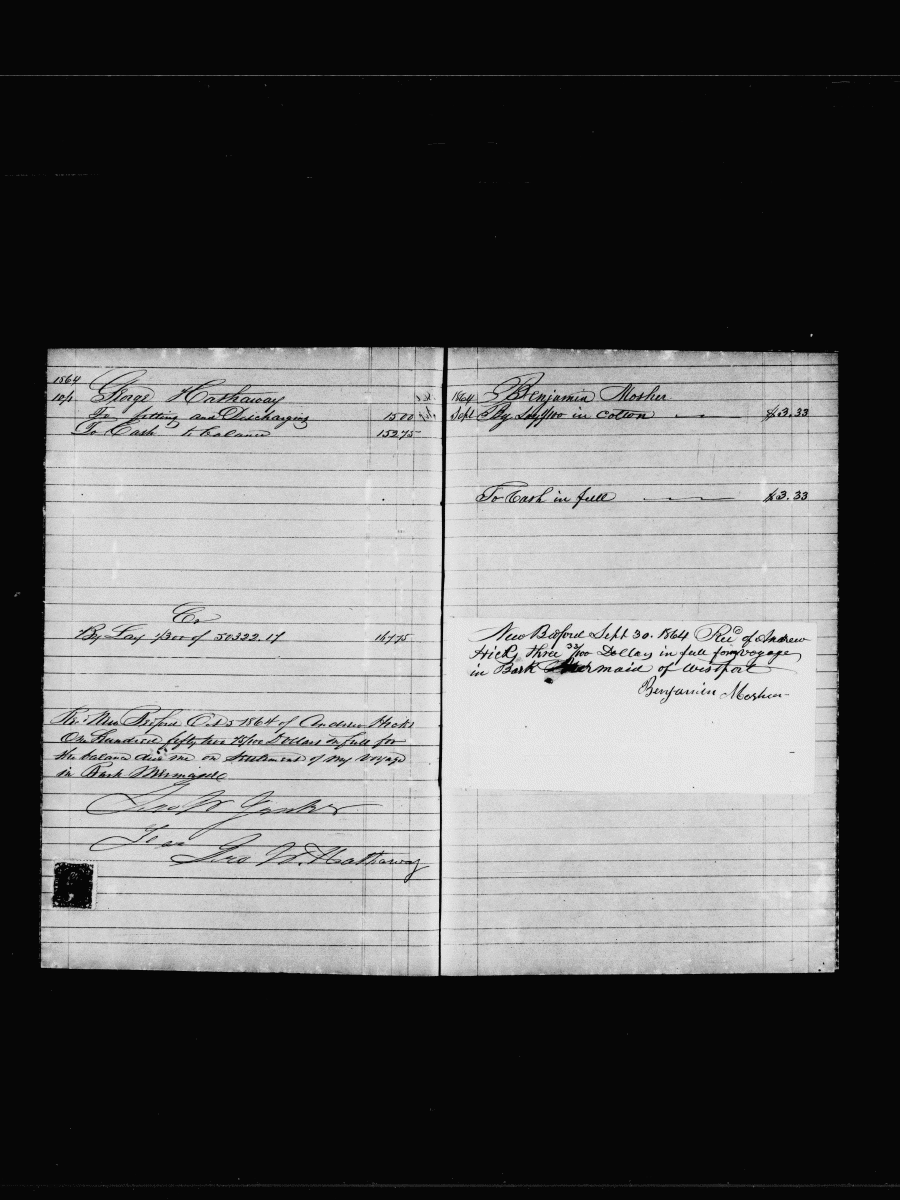 1864
10/1 George Hathaway
To fitting and Discharging 15 00
To Cash to balance 152 75
Cr
By Lay 1/300 of 50322.17 167 75
New Bedford Oct 5 1864 of Andrew Hicks
One Hundred fifty two 75/100 Dollars in full for
the balance due me on Settlement of my voyage
in Bark Mermaid
Geo W
Geo W. Hathaway
1864 Benjamin Mosher
Sept By in Cotton $3.33
To Cash in full $3.33
New Bedford Sept 30. 1864 Recd of Andrew
Hicks three 33/100 Dollars in full for voyage
in Bark Mermaid of Westport
Benjamin Mosher